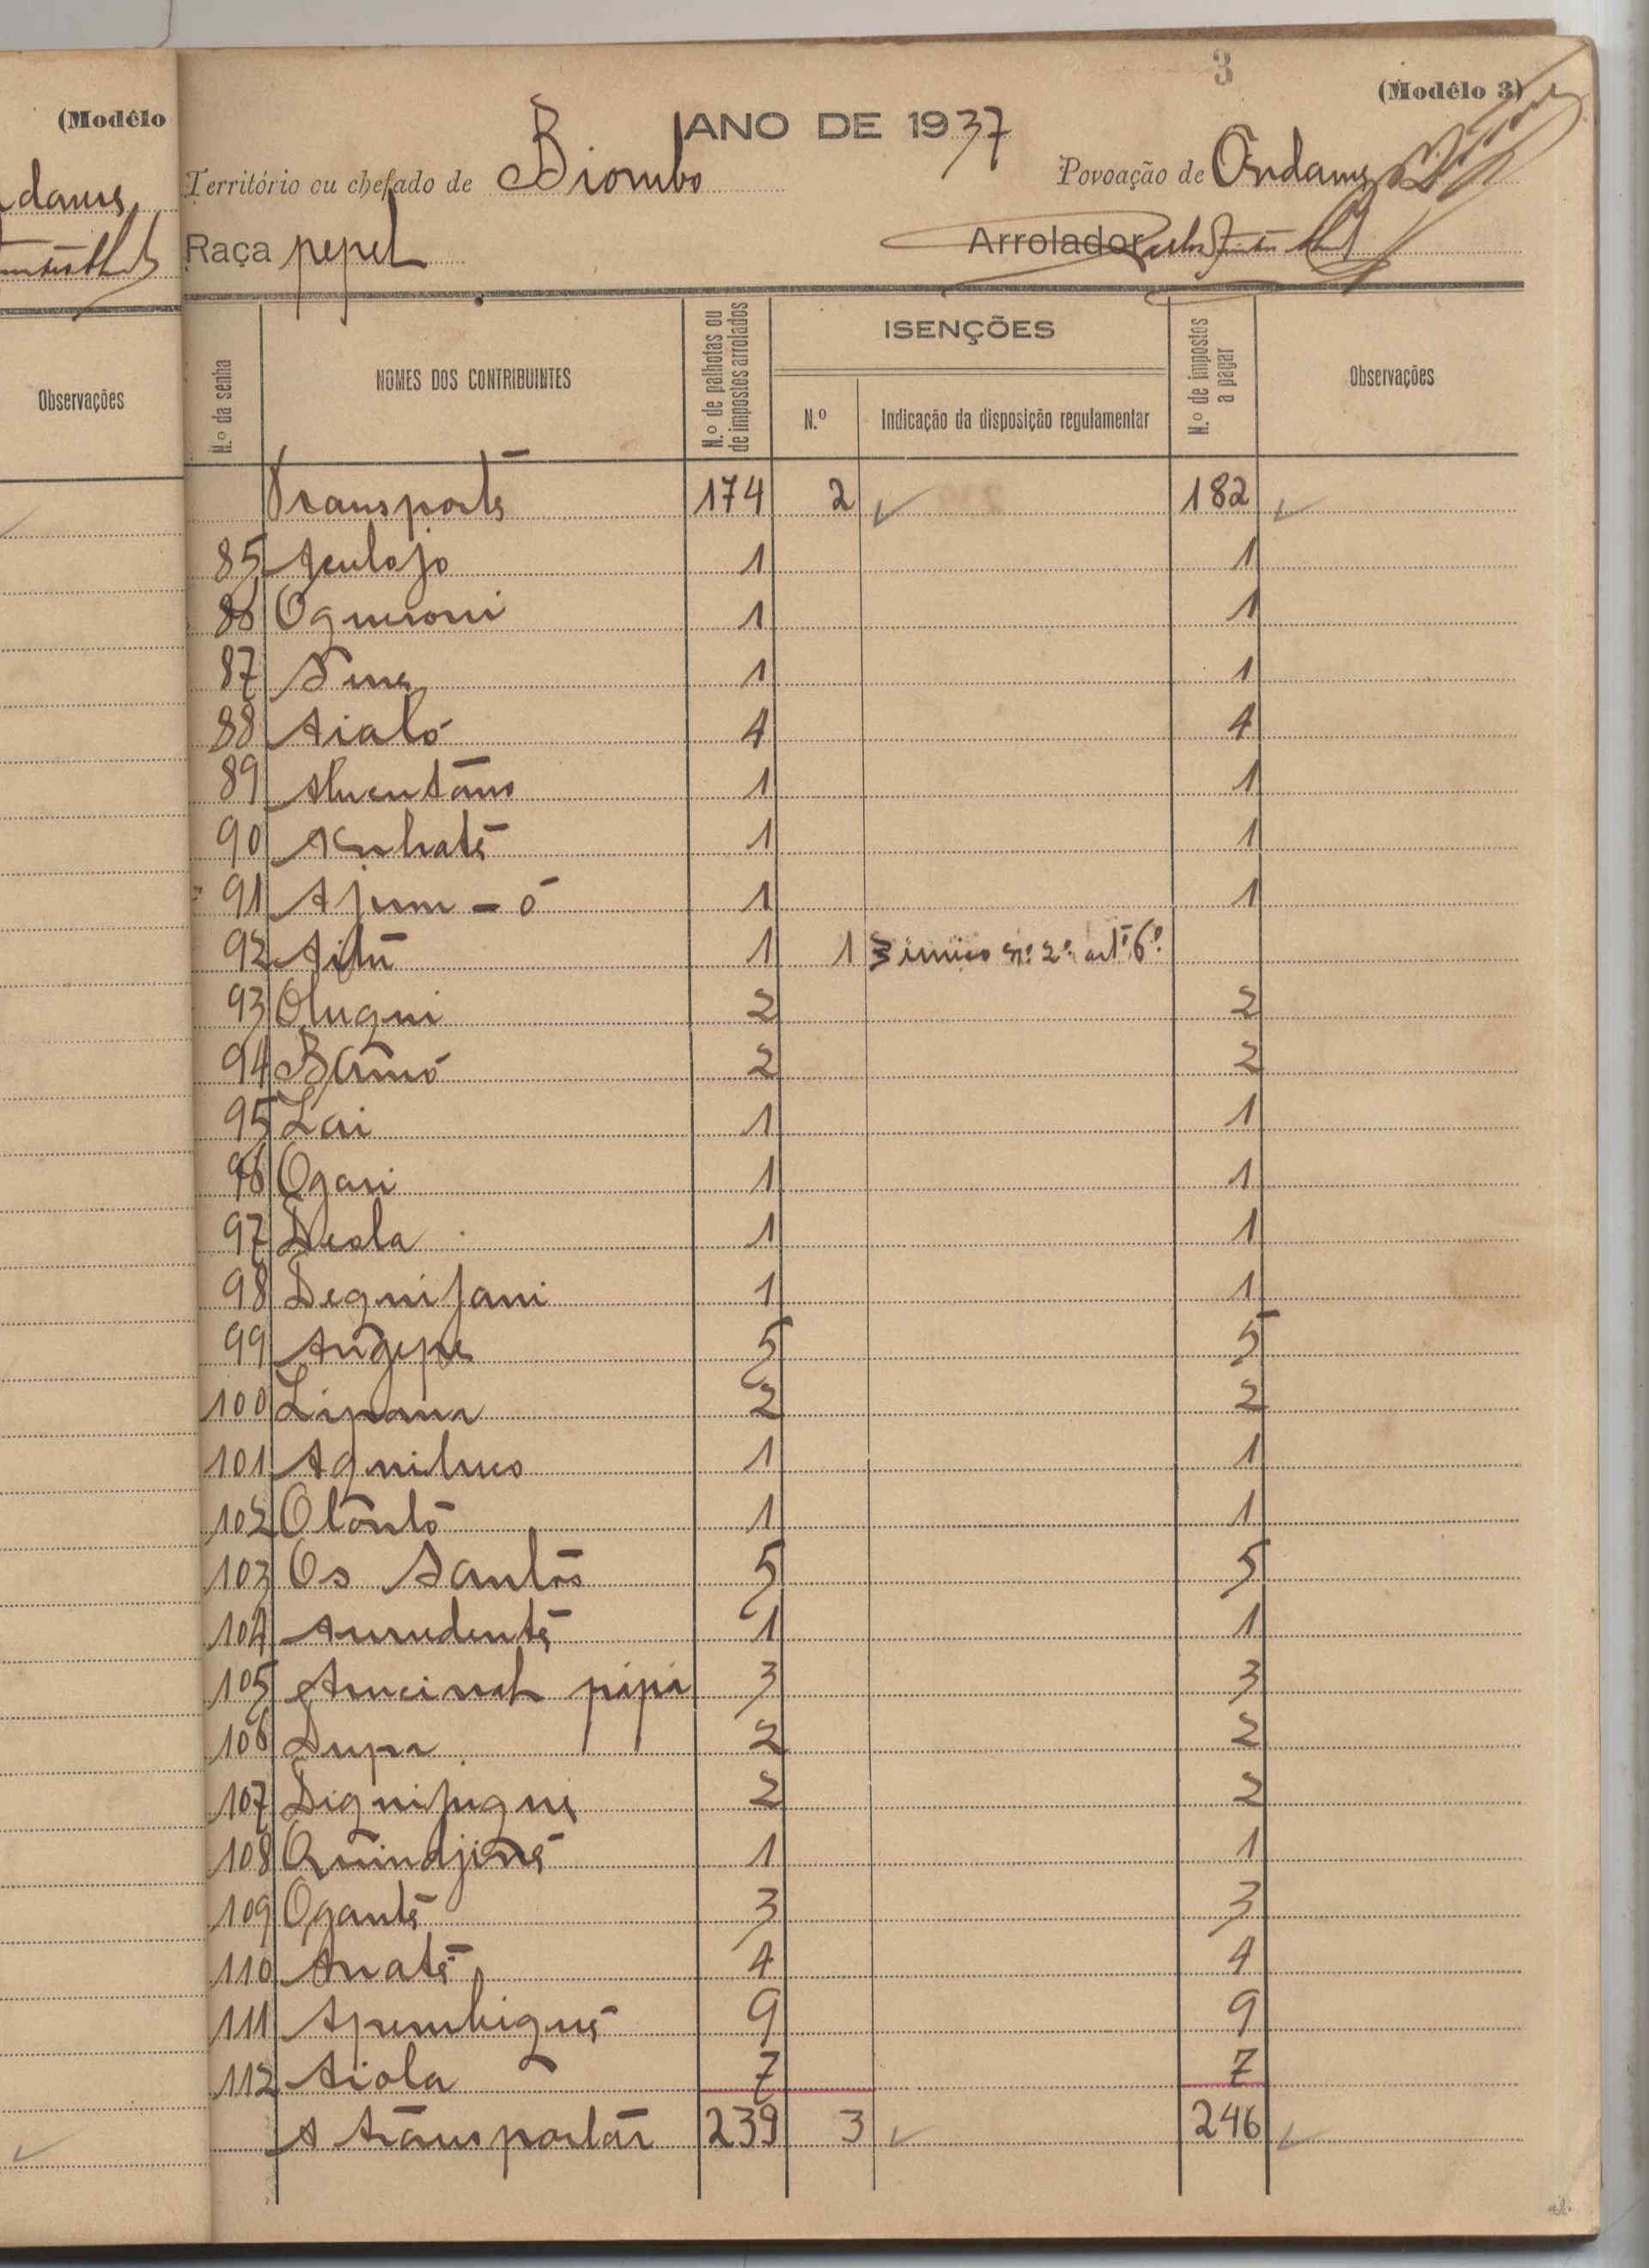 3
(Modêlo
(Modêlo 3)
ANO DE 1937
danus
Território ou chefado de Biombo
Povoação de Ondame
Raça pepel
Arrolador
Observações
N.º da senha
NOMES DOS CONTRIBUINTES
N.º de palhotas ou de impostos arrolados
ISENÇÕES
N.º
Indicação da disposição regulamentar
N.º de impostos a pagar
Observações
Transporte 174 2 182
85 Aculojo 1 1
86 Oqueroni 1 1
87 1 1
88 Aialó 4 4
89 1 1
90 1 1
91 Ajum - ó 1 1
92 Aitu 1 1 § único nº 2º artº 6º
93 Oluqui 2 2
94 Bamó 2 2
95 Lai 1 1
96 Ogari 1 1
97 Deola 1 1
98 Dequifani 1 1
99 Angepe 5 5
100 Lipana 2 2
101 1 1
102 Otontó 1 1
103 Os Santos 5 5
104 1 1
105 pipia 3 3
106 Dupa 2 2
107 2 2
108 Quindjiné 1 1
109 Oganté 3 3
110 Anaté 4 4
111 Apembiqué 9 9
112 Aiola 7 7
A transportar 239 3 246